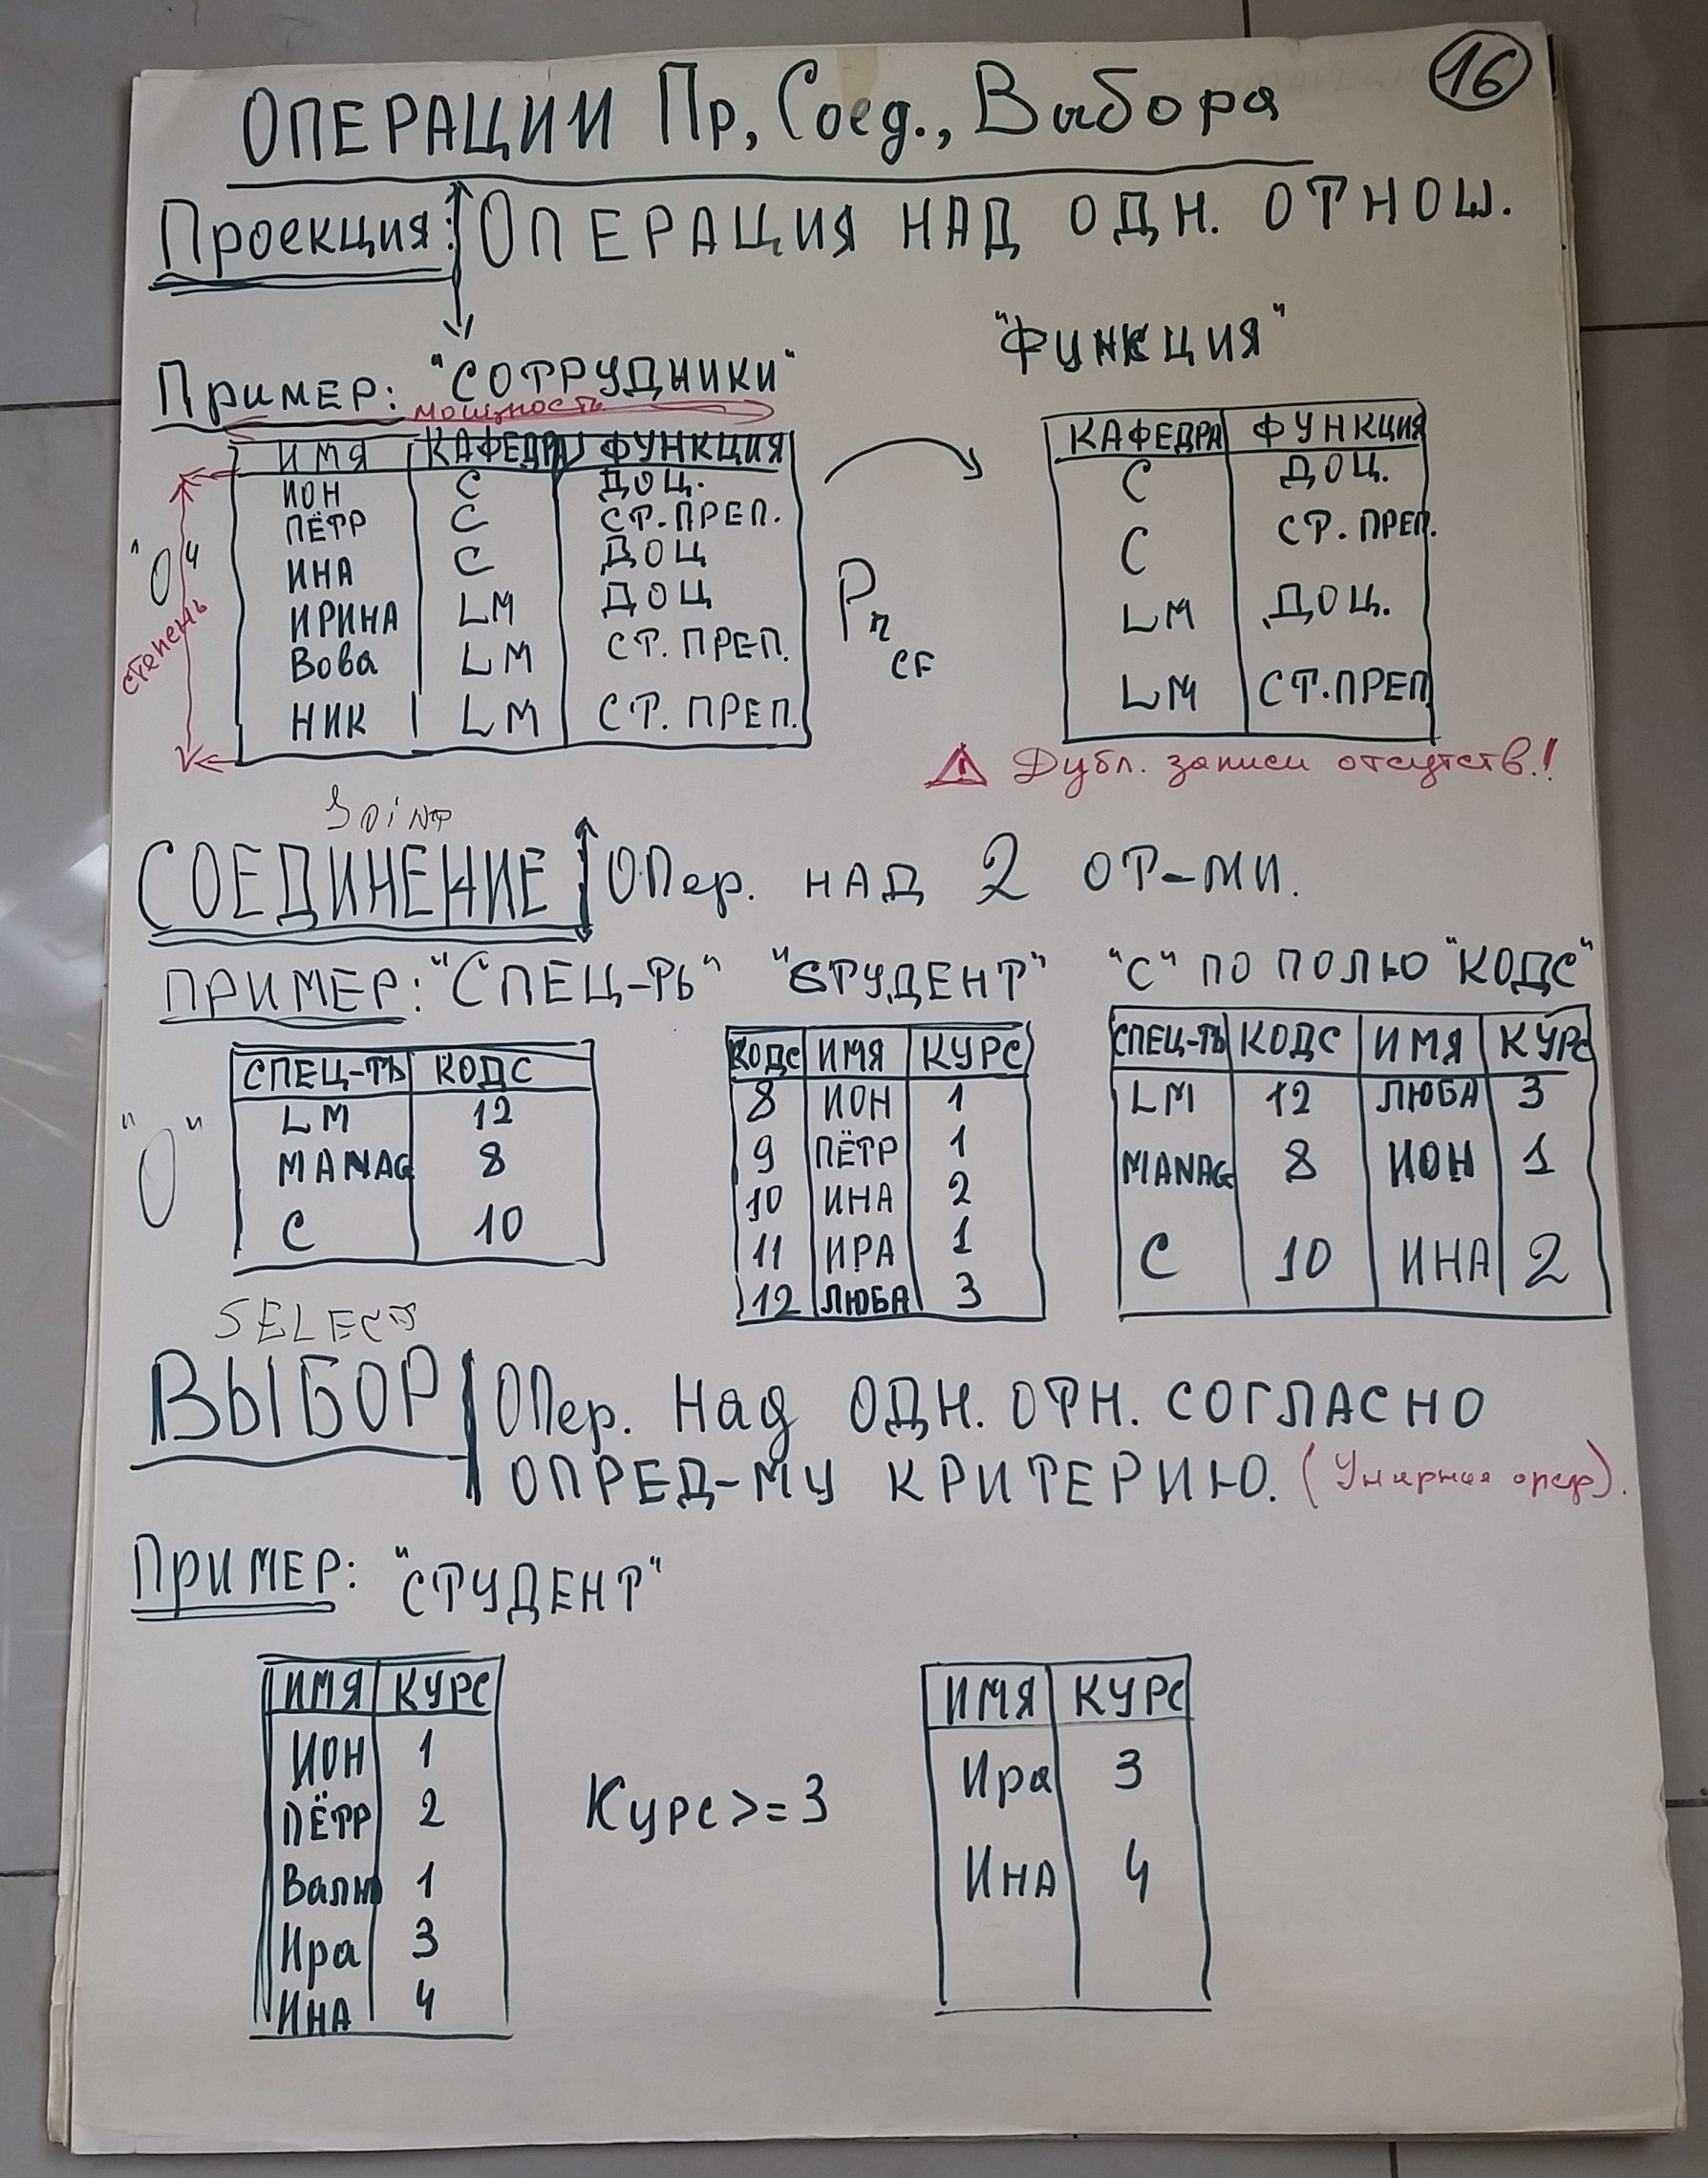 16
ОПЕРАЦИИ Пр, Соед., Выбора
Проекция: ОПЕРАЦИЯ НАД ОДН. ОТНОШ.
Пример: "СОТРУДНИКИ" "ФУНКЦИЯ"
мощность
ИМЯ КАФЕДРА ФУНКЦИЯ
ИОН С ДОЦ.
ПЁТР С СТ.ПРЕП.
ИНА С ДОЦ
ИРИНА LM ДОЦ
Вова LM СТ. ПРЕП.
НИК LM СТ. ПРЕП.
"О"
степень
Pr CF
КАФЕДРА ФУНКЦИЯ
С ДОЦ.
С СТ. ПРЕП.
LM ДОЦ.
LM СТ.ПРЕП
Дубл. записи отсутств.!
СОЕДИНЕНИЕ ОПер. НАД 2 ОТ-МИ.
ПРИМЕР: "СПЕЦ-ТЬ" "СТУДЕНТ" "С" ПО ПОЛЮ "КОДС"
СПЕЦ-ТЬ КОДС
LM 12
MANAG 8
С 10
"О"
КОДС ИМЯ КУРС
8 ИОН 1
9 ПЁТР 1
10 ИНА 2
11 ИРА 1
12 ЛЮБА 3
СПЕЦ-ТЬ КОДС ИМЯ КУРС
LM 12 ЛЮБА 3
MANAG 8 ИОН 1
С 10 ИНА 2
SELECT
ВЫБОР ОПер. Над ОДН. ОТН. СОГЛАСНО
ОПРЕД-МУ КРИТЕРИЮ. (Унарная опер).
ПРИМЕР: "СТУДЕНТ"
ИМЯ КУРС
ИОН 1
ПЁТР 2
Валя 1
Ира 3
ИНА 4
Курс >= 3
ИМЯ КУРС
Ира 3
ИНА 4